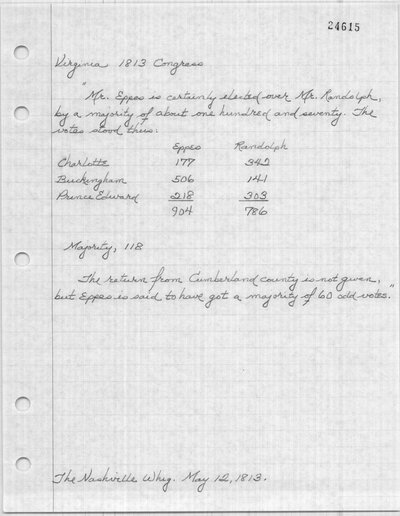 24615
Virginia 1813 Congress
"Mr. Eppes is certainly elected over Mr. Randolph,
by a majority of about one hundred and seventy. The
votes stood thus:
Eppes Randolph
Charlotte 177 342
Buckingham 506 141
Prince Edward 218 303
904 786
Majority, 118
The return from Cumberland county is not given,
but Eppes is said to have got a majority of 60 odd votes."
The Nashville Whig. May 12, 1813.